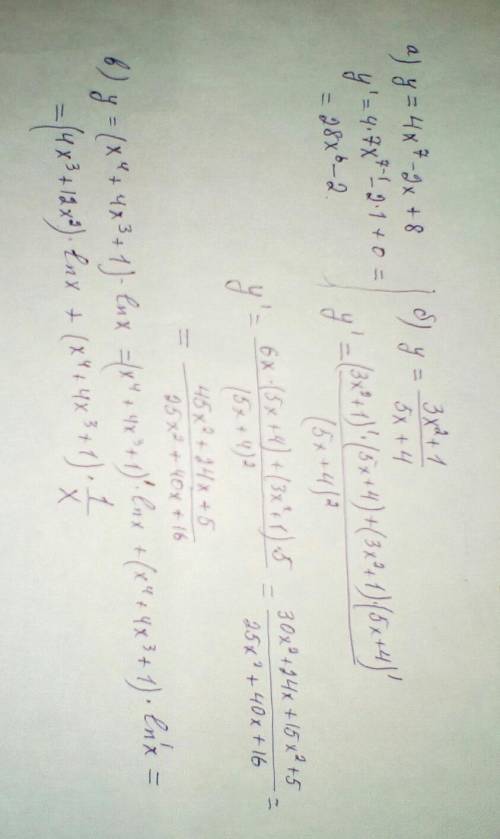 а) y = 4x⁷ - 2x + 8
y' = 4·7x⁷⁻¹ - 2·1 + 0 =
= 28x⁶ - 2
б) y = (3x²+1)/(5x+4)
y' = ((3x²+1)'·(5x+4) + (3x²+1)·(5x+4)')/(5x+4)²
y' = (6x·(5x+4) + (3x²+1)·5)/(5x+4)² = (30x²+24x+15x²+5)/(25x²+40x+16) =
= (45x²+24x+5)/(25x²+40x+16)
в) y = (x⁴+4x³+1)·lnx = (x⁴+4x³+1)'·lnx + (x⁴+4x³+1)·ln'x =
= (4x³+12x²)·lnx + (x⁴+4x³+1)·1/x